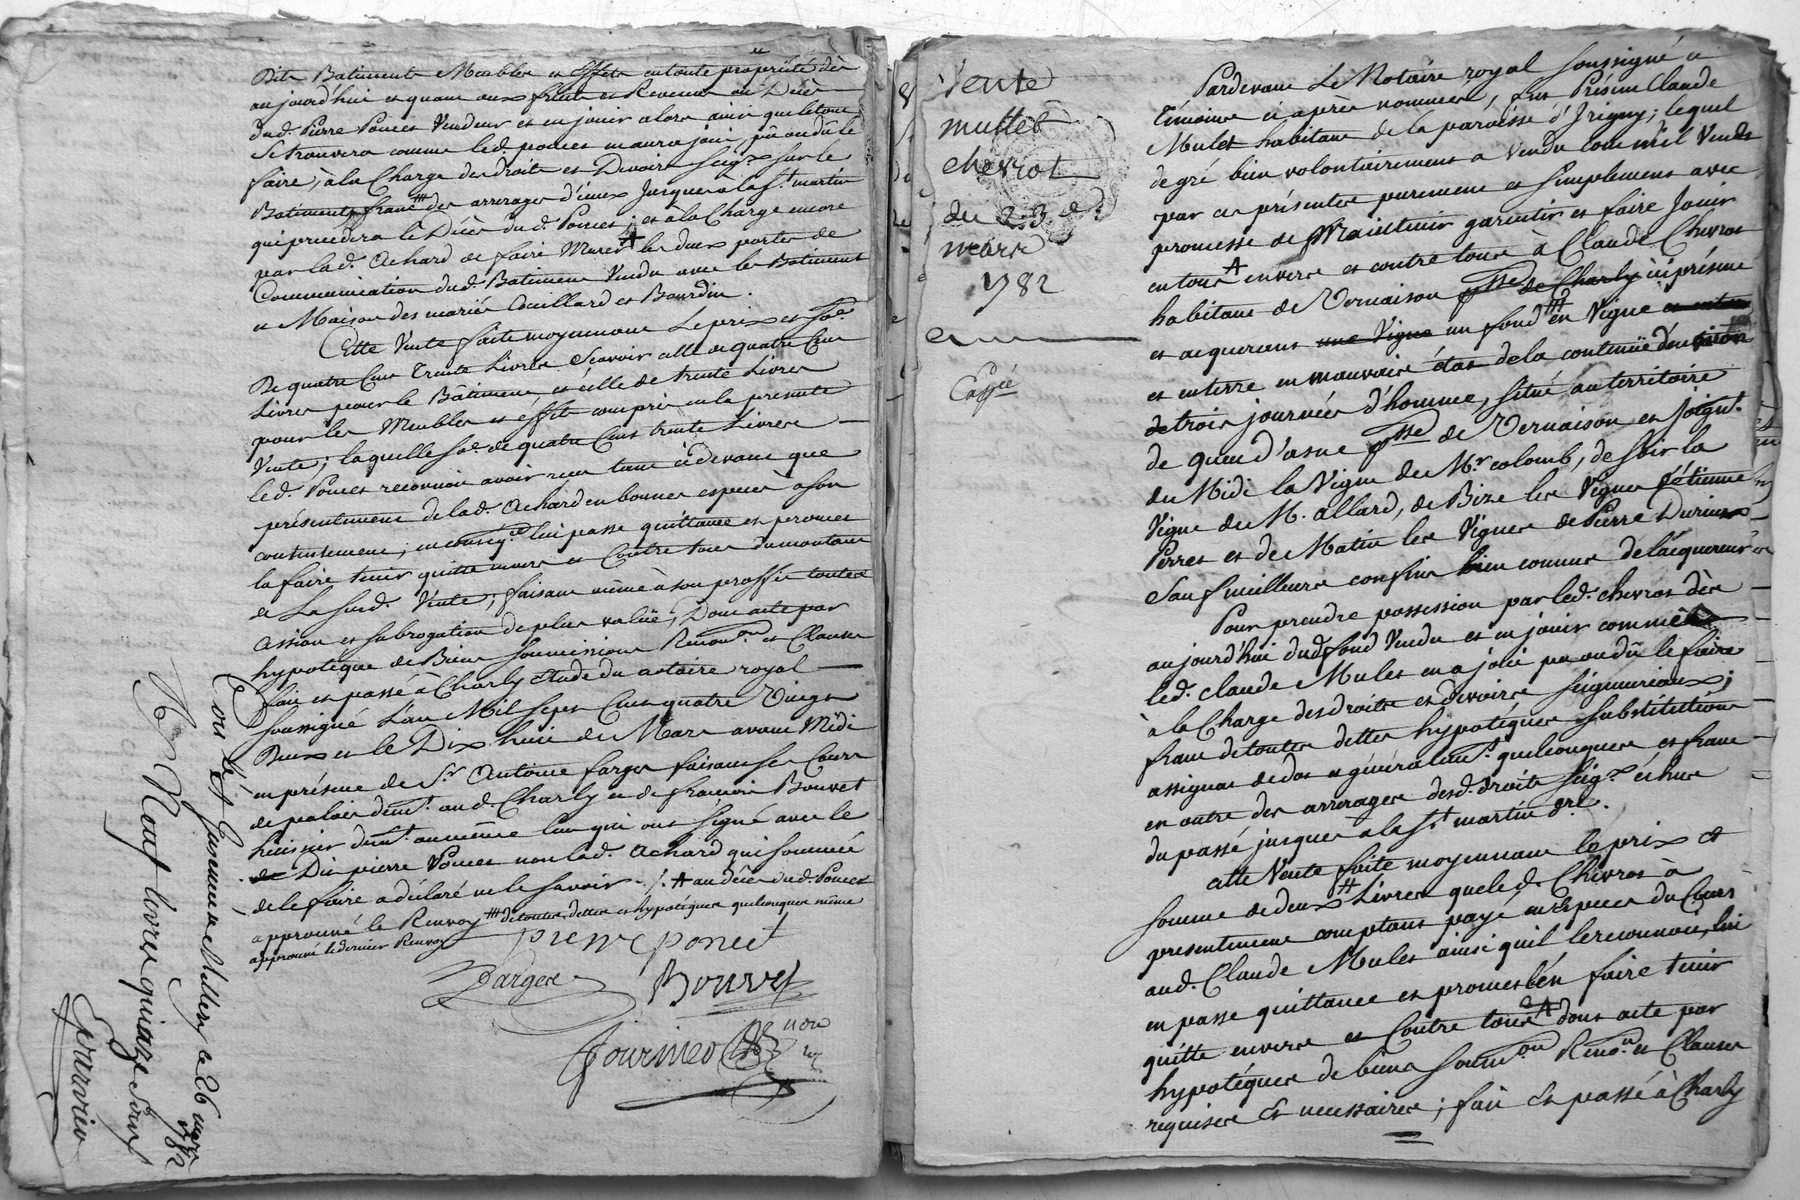 Dits Batiments Meubles et Effets en toute propriété dès
aujourd'hui et quant aux fruits et Revenus au Décès
dud. Pierre Poncet Vendeur et en jouir alors ainsi que le tout
se trouvera comme led. poncet en aura joui, pû ou dû le
faire, à la Charge des droits et Devoirs Seigx. sur le
Batiments franc ### des arrerages d'iceux jusques à la St. martin
qui precedera le Décès dud. Poncet; et à la Charge encore
par lad. Achard de faire Murer les deux portes de
Communication dud. Batiment Vendu avec les Batiment
et Maison des mariés Couillard et Bourdin.
Cette Vente faite moyennant le prix et soe.
De quatre Cent Trente Livres Scavoir celle de quatre Cent
Livres pour le Bâtiment, et celle de trente Livres
pour les Meubles et effets compris en la presente
Vente; laquelle soe. de quatre Cent trente Livres
led. Poncet reconnoit avoir reçu tant cidevant que
présentement de lad. Achard en bonnes especes à son
contentement, en conseq. lui passe quittance et promet
la faire tenir quitte envers et Contre tous du montant
de La susd. Vente; faisant même à son proffit toutes
Cession et subrogation de plus value; Dont acte par
hypotéque de Biens soumissions Renonon. et Clauses
fait et passé à Charly Etude du notaire royal
soussigné L'an Mil Sept Cent quatre Vingt
Deux et le Dix huit de Mars avant Midi
en présence de Sr. Antoine farges faisant ses Cours
de palais demt. aud. Charly et de françois Bouvet
huissier demt. au même lieu qui ont signé avec le
Dit pierre Poncet non lad. Achard qui sommée
de le faire a déclaré ne le savoir ./. au décès dud. Poncet
approuvé le Renvoy ### de toutes dettes et hypotéques quelconques même
approuvé le dernier Renvoy
pierre poncet
Farges
Bouvet
Con. le et Insinué à Millery le 26 mars 1782
R. Neuf livres quinze sous
Vente
mullet
chevrot
du 23 d.
mars
1782
Expié
Pardevant Le Notaire royal soussigné et
témoins ci après nommés, fut Présent Claude
Mulet habitant de la paroisse d'Irigny; lequel
de gré bien volontairement a vendu comme il Vend
par ces présentes purement et simplement avec
promesse de Maintenir garentir et faire Jouir
entout envers et contre tous à Claude Chevrot
habitant de Vernaison psse de Charly ici présent
et acquerent une Vigne un fond en Vigne
et en terre en mauvais état de la contenüe d'environ
de trois journées d'homme, situé au territoire
de queu d'asne psse de Vernaison et joignt.
du Midi la Vigne de Mr. colomb, de Soir la
Vigne de M. allard, de Bize les Vignes d'étienne
Perret et de Matin les Vignes de Pierre
Sauf meilleurs confins bien connus de l'acquereur
Pour prendre possession par led. chevrot dès
aujourd'hui dud. fond Vendu et en jouir comme
led. Claude Mulet en a joüi pu ou dû le faire
à la Charge des droits et devoirs seigneuriaux;
franc de toutes dettes hypotéques substitutions
assignat de dot et généralemt. quelconques et franc
en outre des arrerages desd. droits seigx. échus
du passé jusques à la St. martin dr.
cette Vente faite moyennant le prix et
somme de deux # Livres que led. Chevrot à
presentement comptant payé en especes du Cours
aud. Claude Mulet ainsi qu'il le reconnoit, lui
en passe quittance et promet l'en faire tenir
quitte envers et Contre tous dont acte par
hypotéques de biens soumon. Renon. et Clauses
requises et necessaires; fait et passé à Charly